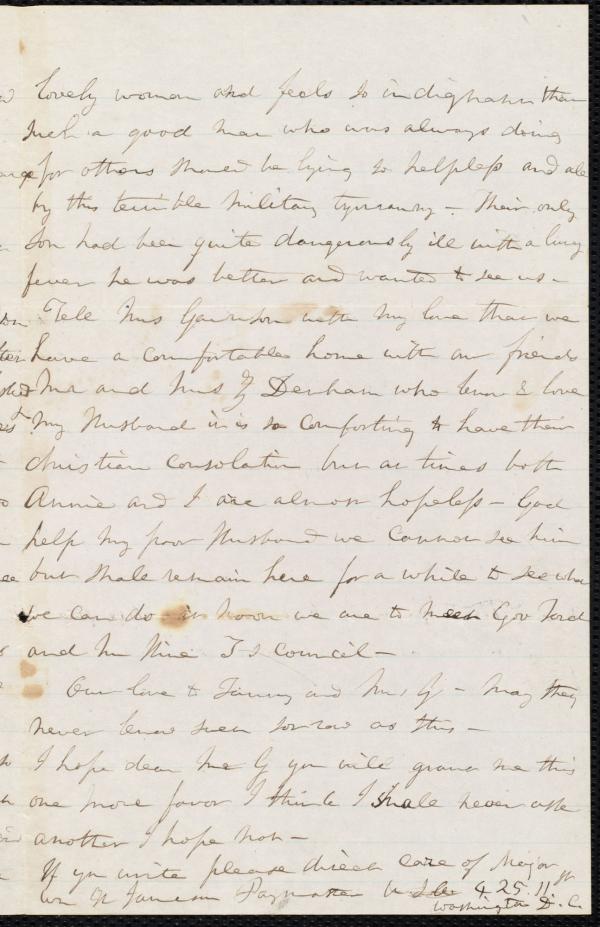 lovely woman and feels so indignant than
such a good man who was always doing
for others should be lying so helpless and all
by this terrible Military tyranny – Their only
Son had been quite dangerously ill with a lung
fever he was better and wanted to see us –
Tell Mrs Garrison with my love that we
have a comfortable home with our friends
Mr and Mrs Denham who know & love
My Husband it is so comforting to have their
christian consolation but at times both
Annie and I are almost hopeless – God
help my poor Husband we cannot see him
but shall remain here for a while to see what
we can do – at noon we are to meet Gov Ford
and Mr council –
Our love to Fanny and Mr G – May they
never know such sorrow as this –
I hope dear Mr G you will grant me this
one more favor I think I shall never ask
another I hope not –
If you write please direct care of Major
Wm Jameson Paymaster 425. 11. st
Washington D. C.